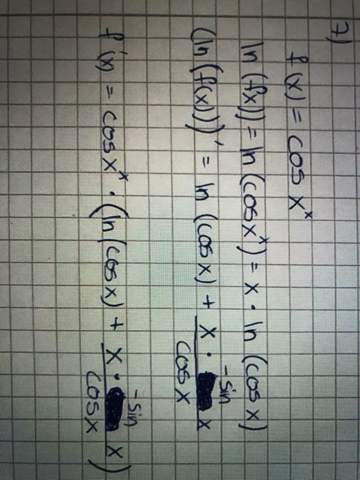 7)
f(x) = cos x^x
ln (f(x)) = ln (cos x^x) = x · ln (cos x)
(ln (f(x)))' = ln (cos x) + (x · -sin x)/(cos x)
f'(x) = cos x^x · (ln (cos x) + (x · -sin x)/(cos x))